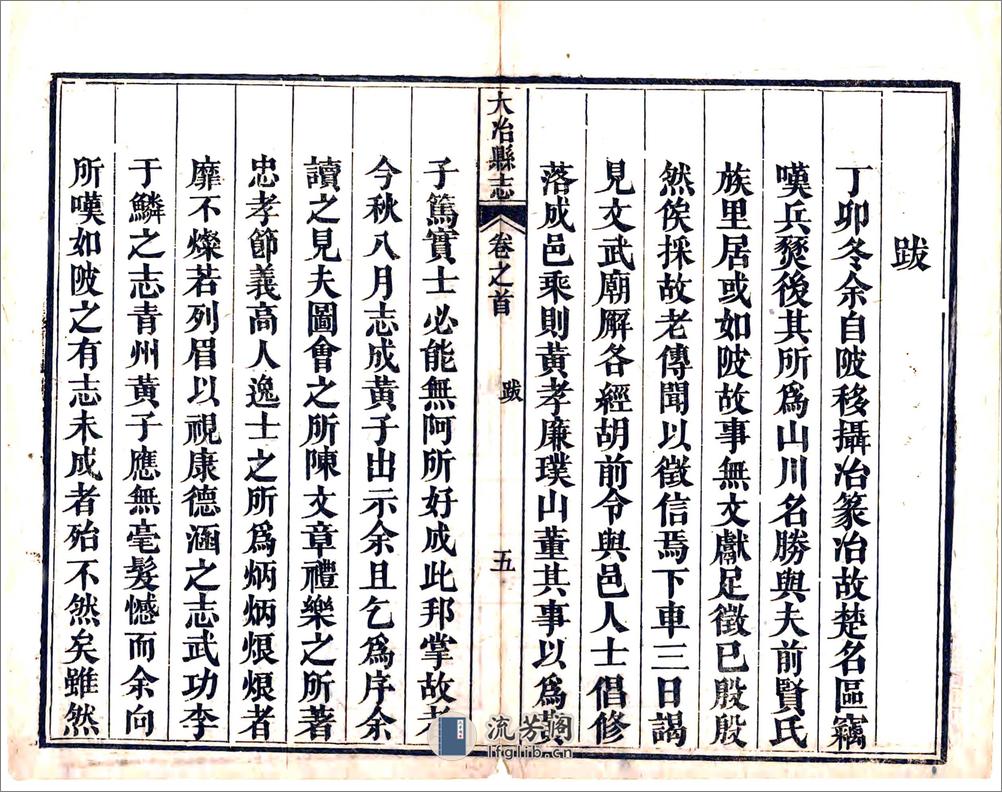 跋
丁卯冬余自陂移攝冶篆冶故楚名區竊
嘆兵燹後其所爲山川名勝與夫前賢氏
族里居或如陂故事無文獻足徵已殷殷
然俟採故老傳聞以徵信焉下車三日謁
見文武廟廨各經胡前令與邑人士倡修
落成邑乘則黃孝廉璞山董其事以爲黃
大冶縣志 卷之首 跋 五
子篤實士必能無阿所好成此邦掌故者
今秋八月志成黃子出示余且乞爲序余
讀之見夫圖會之所陳文章禮樂之所著
忠孝節義高人逸士之所爲炳炳烺烺者
靡不燦若列眉以視康德涵之志武功李
于鱗之志青州黃子應無毫髮憾而余向
所嘆如陂之有志未成者殆不然矣雖然
流芳閣
lfglib.cn